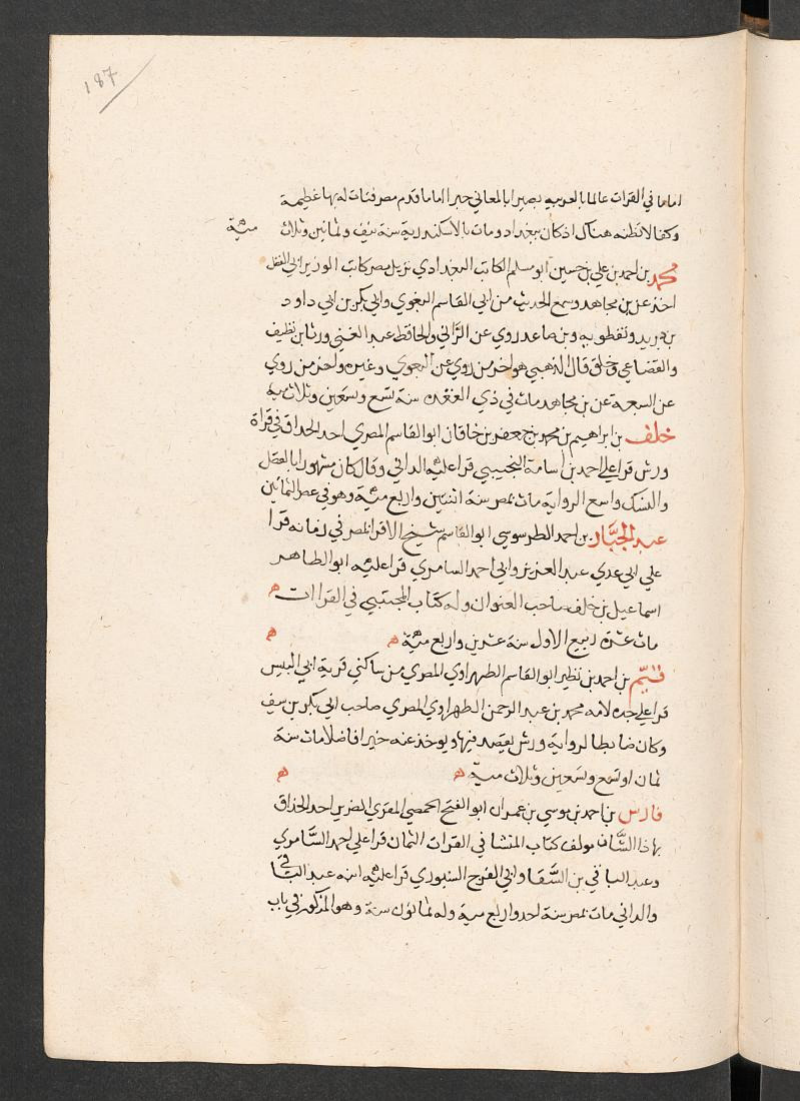 187
اماما في القرات عالما بالعربيه بصيرا بالمعاني خيرا اماما قدم مصر فبات له بها عظيمة
وكفالا نظنه هناك اذ كان ببغداد ومات بالاسكندرية سنة نيف وثمانين وثلاث مئية
محمد بن احمد بن علي بن حسين ابو مسلم الكاتب البغدادي نزيل مصر كاتب الوزير ابي الفضل
اخذ عن بن مجاهد وسمع الحديث من ابي القاسم البغوي وابي بكر بن ابي داود
بن دريد ونفطويه وبن صاعد روي عن الداني والحافظ عبد الغني ورشا بن نظيف
والقضاعي وخلق قال الذهبي هو اخر من روي عن البغوي وغيره واخر من روي
عن السبعه عن بن مجاهد مات في ذي القعده سنة تسع وتسعين وثلاث ميه
خلف بن ابراهيم بن محمد بن جعفر بن خاقان ابو القاسم المصري احد الحذاق في قراة
ورش قرا علي احمد بن اسامة التجيبي قرا عليه الداني وقال كان مشهورا بالفضل
والنسك واسع الروايه مات بمصر سنة اثنتين واربع مئية وهو في عصر الثمانين
عبد الجبار بن احمد الطرسوسي ابو القاسم شيخ الاقرا بمصر في زمانه قرا
علي ابي عدي عبد العزيز وابي احمد السامري قرا عليه ابو الطاهر
اسماعيل بن خلف صاحب العنوان وله كتاب المجتبي في القراات ه
مات غرة ربيع الاول سنة عشرين واربع مئية ه ه
قسيم بن احمد بن نظير ابو القاسم الطهراوي المصري من ساكني قرية ابي البيس
قرا علي جده لامه محمد بن عبد الرحمن الطهراوي المصري صاحب ابي بكر بن سيف
وكان ضابطا لرواية ورش يقصد فيها ويوخذ عنه خيرا فاضلا مات سنة
ثمان او تسع وتسعين وثلاث مية ه ه
فارس بن احمد بن موسي بن عمران ابو الفتح الحمصي المقري الضرير احد الحذاق
بهاذا الشان مولف كتاب المنشا في القرات الثمان قرا علي احمد السامري
وعبد الباقي بن السقا وابي الفرج الشنبوذي قرا عليه ابنه عبد الباقي
والداني مات بمصر سنة احد واربع مية وله ثمانون سنة وهو المذكور في باب